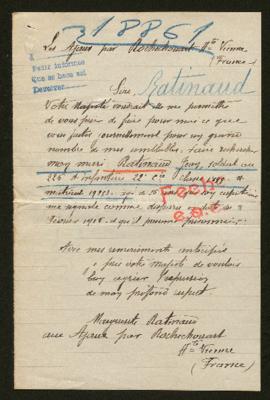 218861
Les Ajeaux par Rochechouart Hte Vienne
(France)
à
Pedir informes
Que se haga así
Devolver
Sire
Ratinaud
Votre Majesté voudrait elle me permettre
de vous prier de faire pour moi ce que
vous faites actuellement pour un grand
nombre de mes semblables, faire rechercher
mon mari Ratinaud Jean, soldat au
226 d'infanterie 22e Cie classe
matricule
me signale comme disparu depuis le
Février 1915 et qui prisonnier.
Fech
Avec mes remerciements anticipés
je prie votre majesté de vouloir
bien agréer l'expression
de mon profond respect
Marguerite Ratinaud
aux Ajeaux par Rochechouart
Hte Vienne
(France)